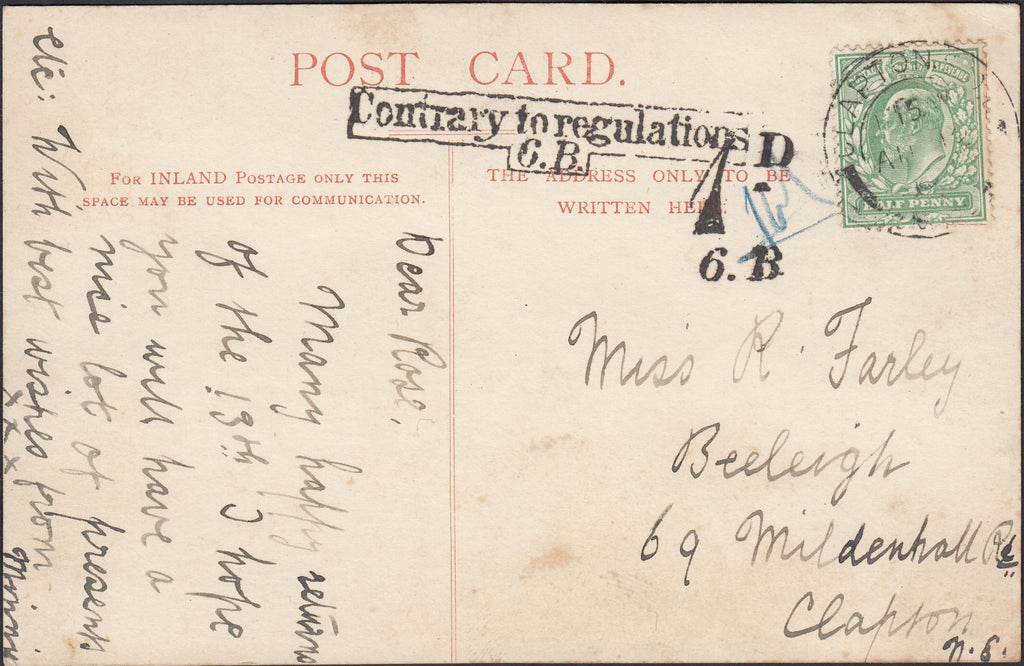 POST CARD.
Contrary to regulations
6.B.
1 D
6.B
FOR INLAND POSTAGE ONLY THIS
SPACE MAY BE USED FOR COMMUNICATION.
THE ADDRESS ONLY TO BE
WRITTEN HERE.
CLAPTON
15
HALF PENNY
Dear Rose,
Many happy returns
of the 13th I hope
you will have a
nice lot of presents
etc: With best wishes from
x x x
Minnie
Miss R. Farley
Beeleigh
69 Mildenhall Rd
Clapton
N.E.